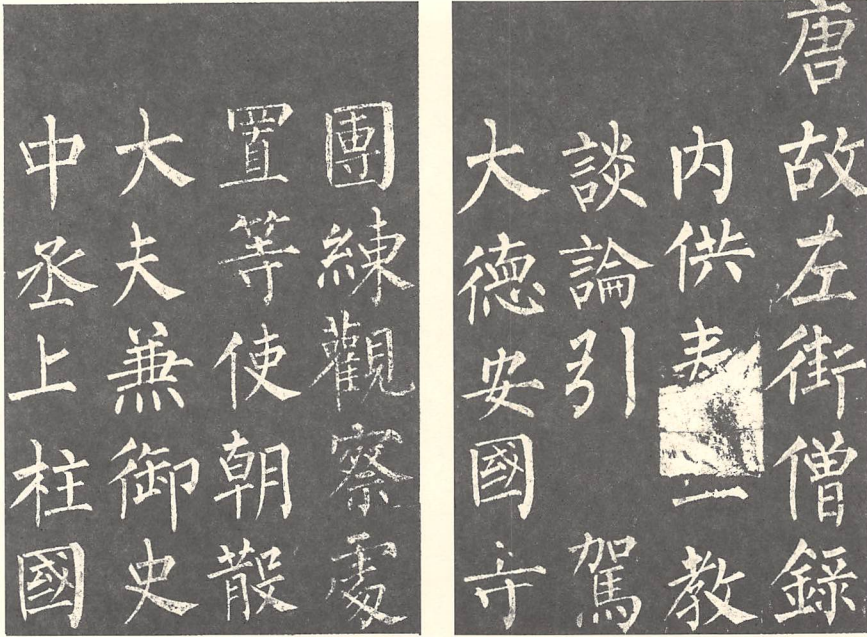 唐故左街僧錄
内供教
談論引 駕
大德安國寺
團練觀察處
置等使朝散
大夫兼御史
中丞上柱國